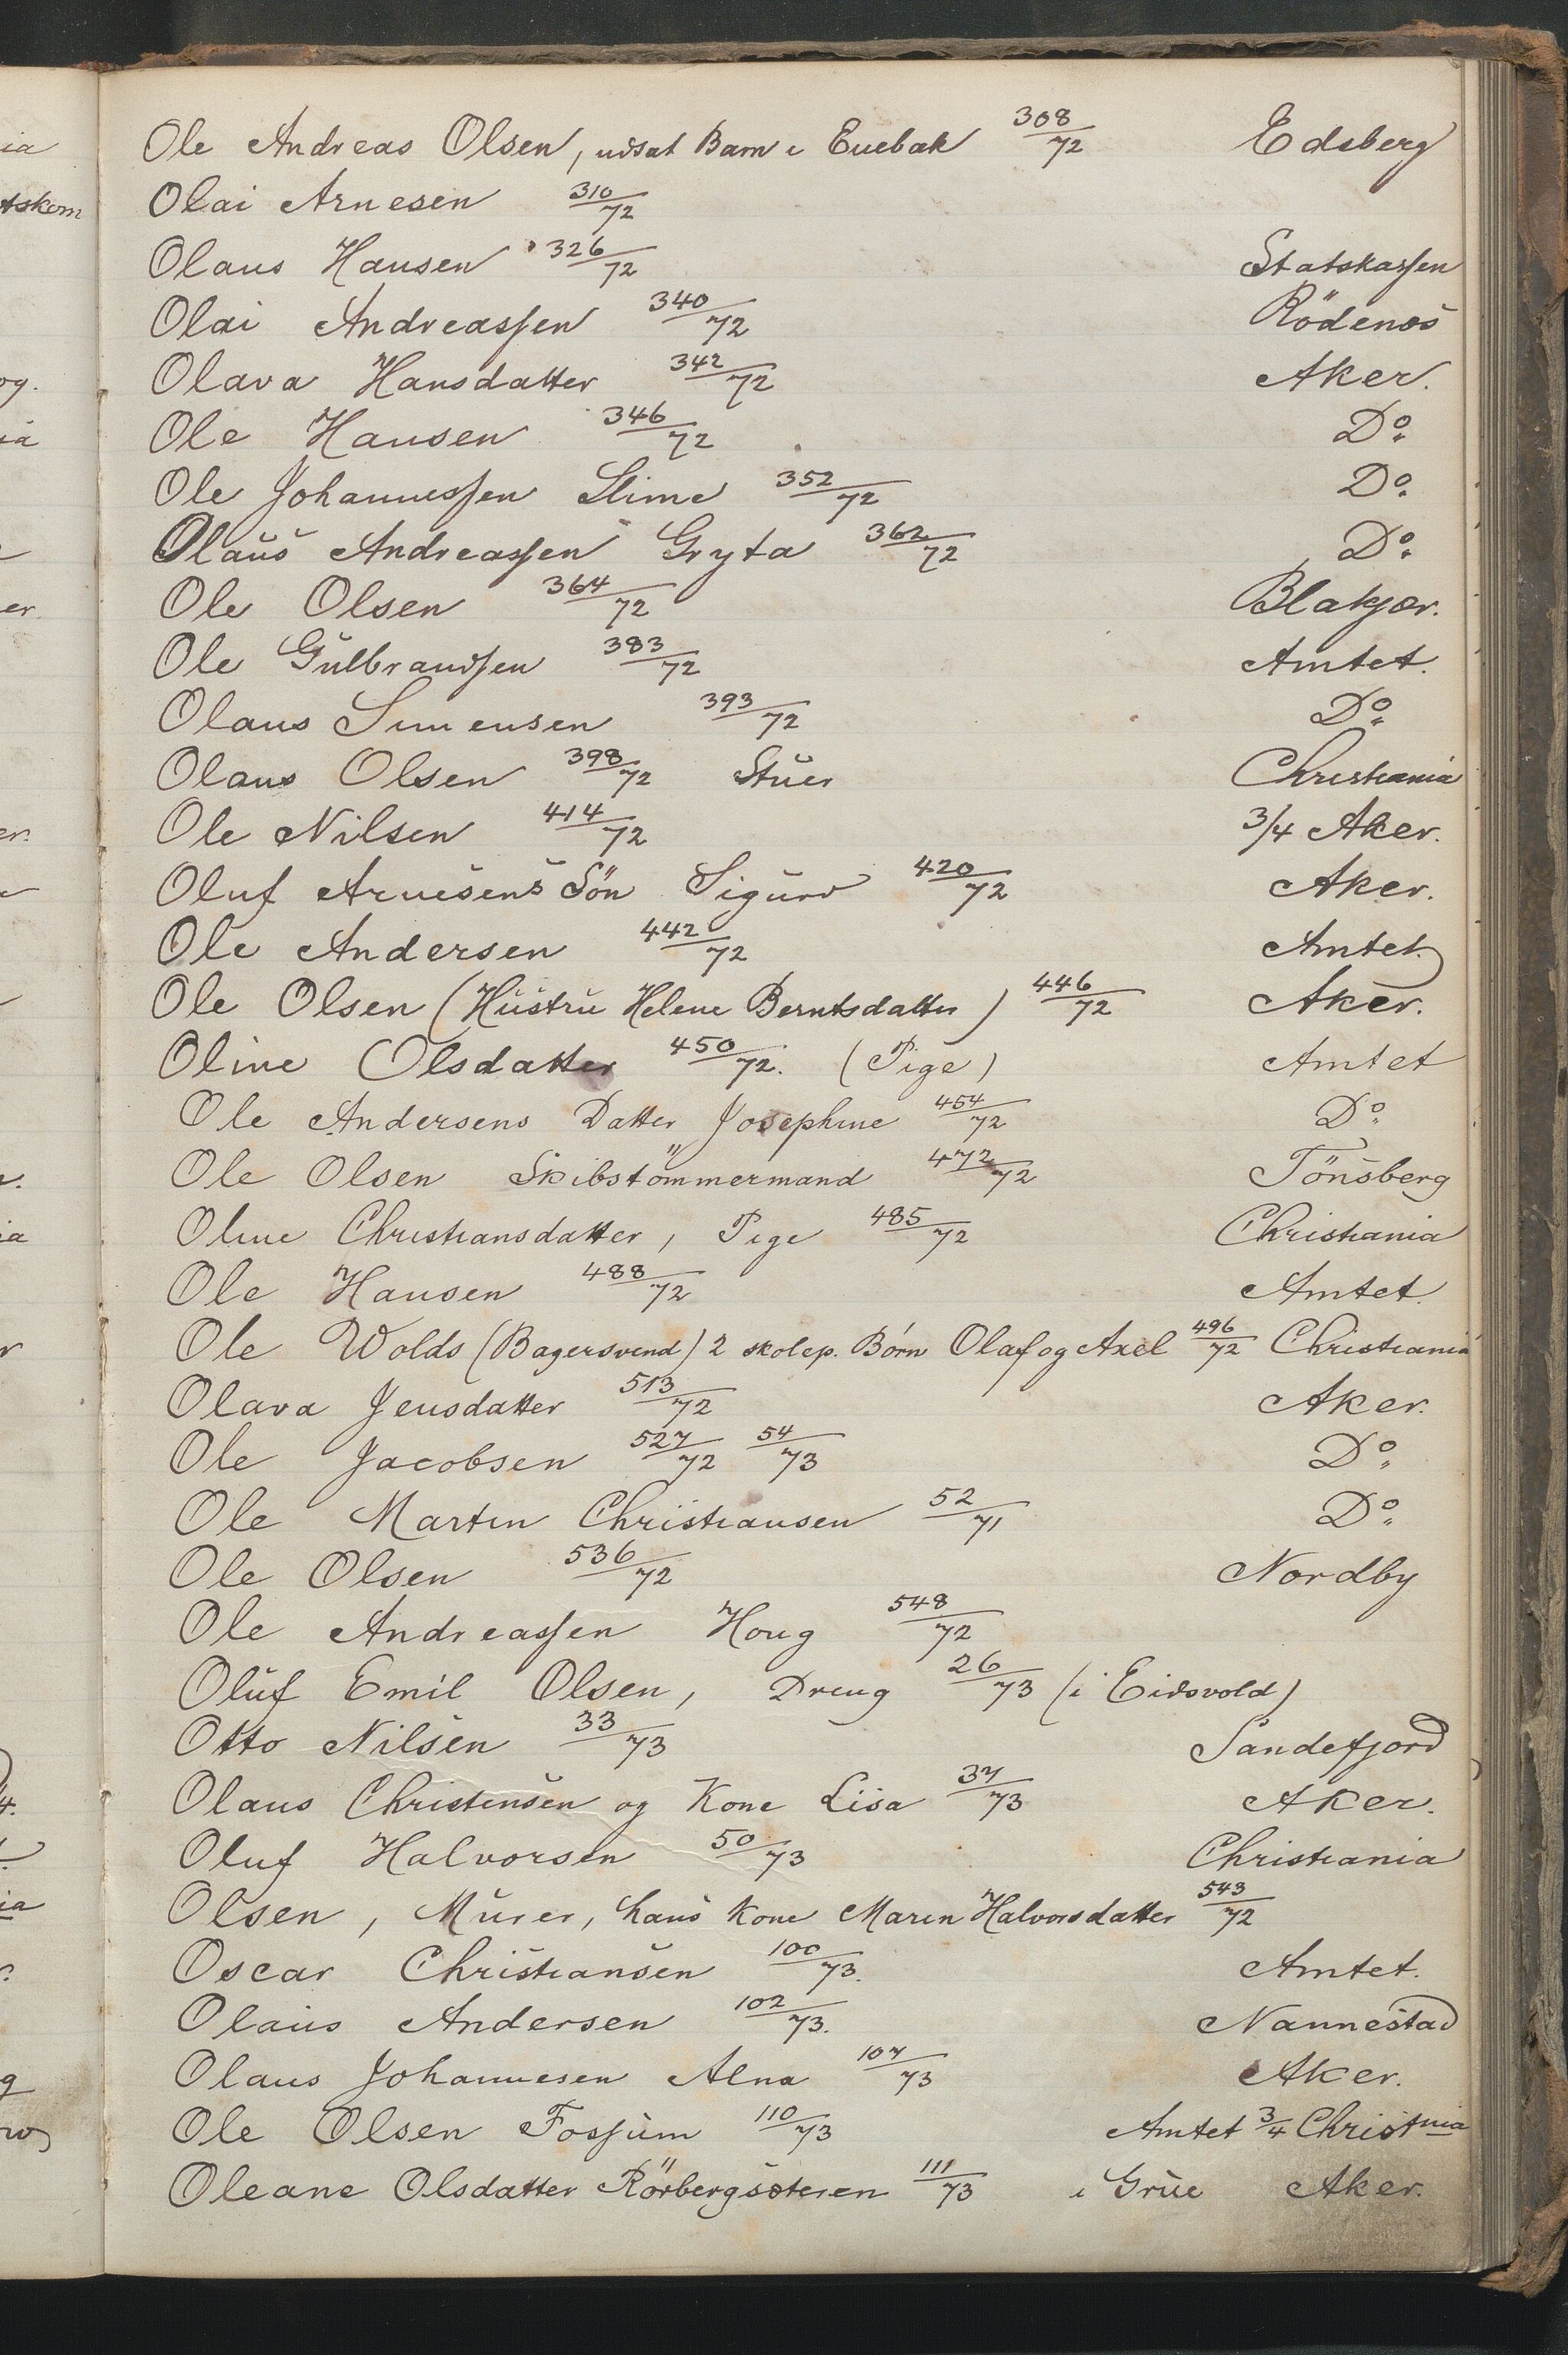 Ole Andreas Olsen, udsat Barn i Enebak 308/72 Edsberg
Olai Arnesen 310/72
Olaus Hansen 326/72 Statskassen
Olai Andreassen 340/72 Rödenæs
Olava Hansdatter 342/72 Aker.
Ole Hansen 346/72 Do.
Ole Johannessen Slime 352/72 Do.
Olaus Andreassen Gryta 362/72 Do.
Ole Olsen 364/72 Blakjær.
Ole Gulbrandsen 383/72 Amtet.
Olaus Simensen 393/72 Do.
Olaus Olsen 398/72 Stuer Christiania
Ole Nilsen 414/72 3/4 Aker.
Oluf Arnesens Sön Sigurd 420/72 Aker.
Ole Andersen 442/72 Amtet.
Ole Olsen (Hustru Helene Berntsdatter) 446/72 Aker.
Oline Olsdatter 450/72. (Pige) Amtet
Ole Andersens Datter Josephine 454/72 Do.
Ole Olsen Skibstömmermand 472/72 Tönsberg
Oline Christiansdatter, Pige 485/72 Christiania
Ole Hansen 488/72 Amtet.
Ole Wolds (Bagersvend) 2 skolep. Börn Olaf og Axel 496/72 Christiania
Olava Jensdatter 513/72 Aker.
Ole Jacobsen 527/72 54/73 Do.
Ole Martin Christiansen 52/71 Do.
Ole Olsen 536/72 Nordby
Ole Andreassen Houg 548/72
Oluf Emil Olsen, Dreng 26/73 (i Eidsvold)
Otto Nilsen 33/73 Sandefjord
Olaus Christensen og Kone Lisa 37/73 Aker.
Oluf Halvorsen 50/73 Christiania
Olsen, Murer, hans Kone Maren Halvorsdatter 543/72
Oscar Christiansen 100/73. Amtet.
Olaus Andersen 102/73. Nannestad
Olaus Johannesen Alna 107/73 Aker.
Ole Olsen Fossum 110/73 Amtet 3/4 Christnia
Oleane Olsdatter Rörbergsæteren 111/73 i Grue Aker.